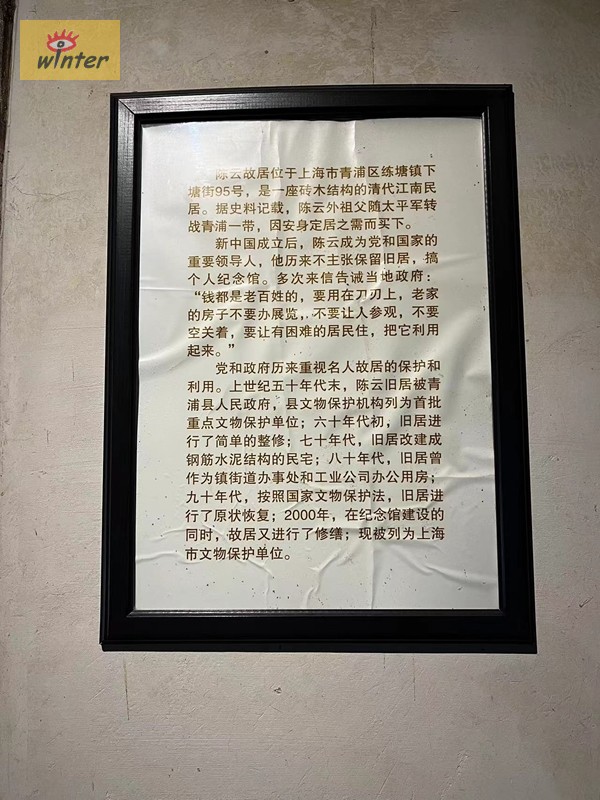 winter
陈云故居位于上海市青浦区练塘镇下
塘街95号，是一座砖木结构的清代江南民
居。据史料记载，陈云外祖父随太平军转
战青浦一带，因安身定居之需而买下。
新中国成立后，陈云成为党和国家的
重要领导人，他历来不主张保留旧居，搞
个人纪念馆。多次来信告诫当地政府：
“钱都是老百姓的，要用在刀刃上，老家
的房子不要办展览，不要让人参观，不要
空关着，要让有困难的居民住，把它利用
起来。”
党和政府历来重视名人故居的保护和
利用。上世纪五十年代末，陈云旧居被青
浦县人民政府，县文物保护机构列为首批
重点文物保护单位；六十年代初，旧居进
行了简单的整修；七十年代，旧居改建成
钢筋水泥结构的民宅；八十年代，旧居曾
作为镇街道办事处和工业公司办公用房；
九十年代，按照国家文物保护法，旧居进
行了原状恢复；2000年，在纪念馆建设的
同时，故居又进行了修缮；现被列为上海
市文物保护单位。